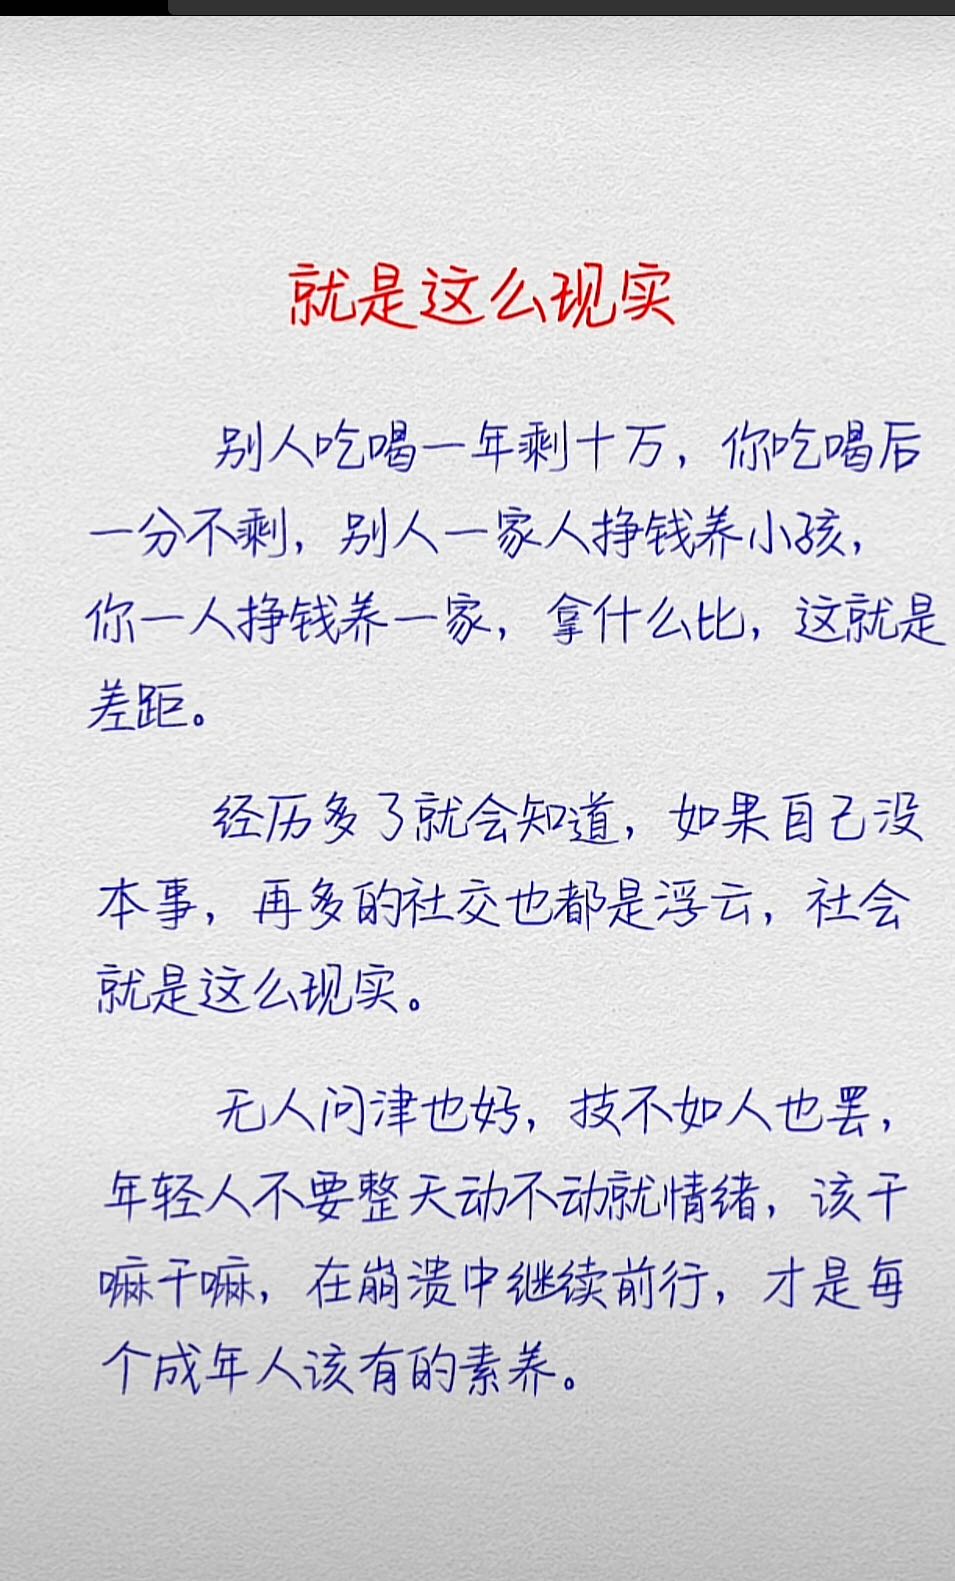 就是这么现实
别人吃喝一年剩十万，你吃喝后
一分不剩，别人一家人挣钱养小孩，
你一人挣钱养一家，拿什么比，这就是
差距。
经历多了就会知道，如果自己没
本事，再多的社交也都是浮云，社会
就是这么现实。
无人问津也好，技不如人也罢，
年轻人不要整天动不动就情绪，该干
嘛干嘛，在崩溃中继续前行，才是每
个成年人该有的素养。